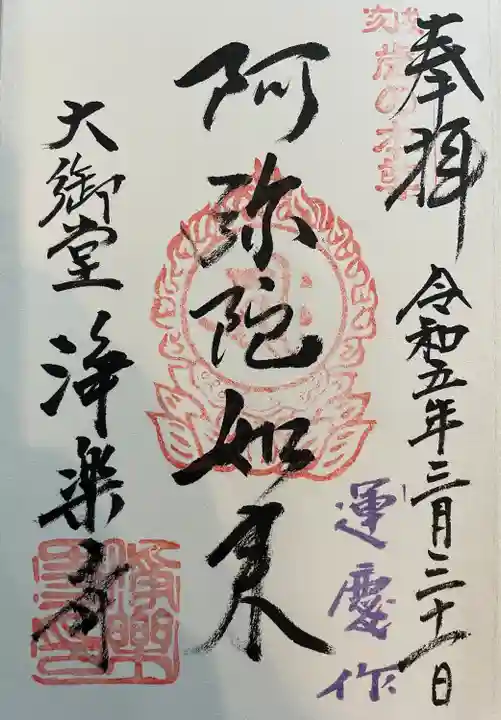 奉拝
令和五年三月三十一日
運慶作
阿弥陀如来
大御堂 浄楽寺